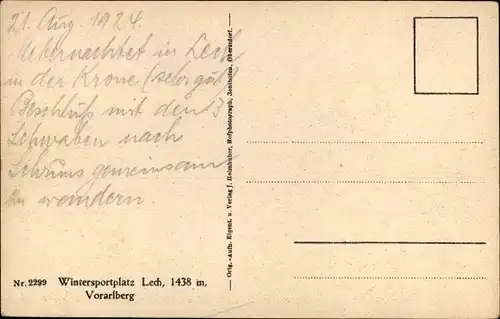 21. Aug. 1924.
Uebernachtet in Lech
in der Krone (sehr gut)
Beschluß mit den 3
Schwaben nach
Schruns gemeinsam
zu wandern.
Nr. 2299 Wintersportplatz Lech, 1438 m,
Vorarlberg
Orig.-Aufn. Eigent. u. Verlag J. Heimhuber, Hofphotograph, Sonthofen, Oberstdorf.